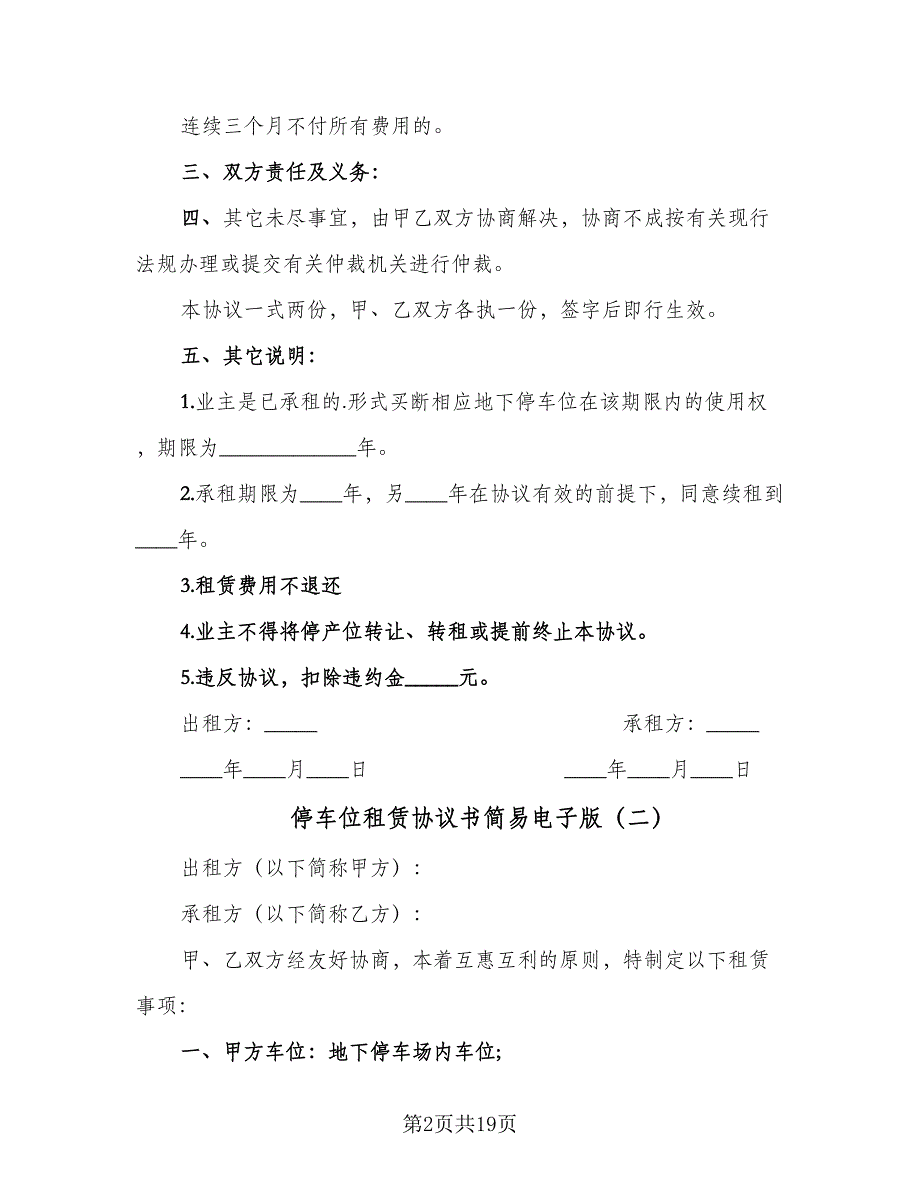 连续三个月不付所有费用的。
三、双方责任及义务：
四、其它未尽事宜，由甲乙双方协商解决，协商不成按有关现行
法规办理或提交有关仲裁机关进行仲裁。
本协议一式两份，甲、乙双方各执一份，签字后即行生效。
五、其它说明：
1.业主是已承租的.形式买断相应地下停车位在该期限内的使用权
，期限为_____________年。
2.承租期限为____年，另____年在协议有效的前提下，同意续租到
____年。
3.租赁费用不退还
4.业主不得将停产位转让、转租或提前终止本协议。
5.违反协议，扣除违约金_____元。
出租方：_____ 承租方：_____
____年____月____日 ____年____月____日
停车位租赁协议书简易电子版（二）
出租方（以下简称甲方）：
承租方（以下简称乙方）：
甲、乙双方经友好协商，本着互惠互利的原则，特制定以下租赁
事项：
一、甲方车位：地下停车场内车位;
第2页共19页